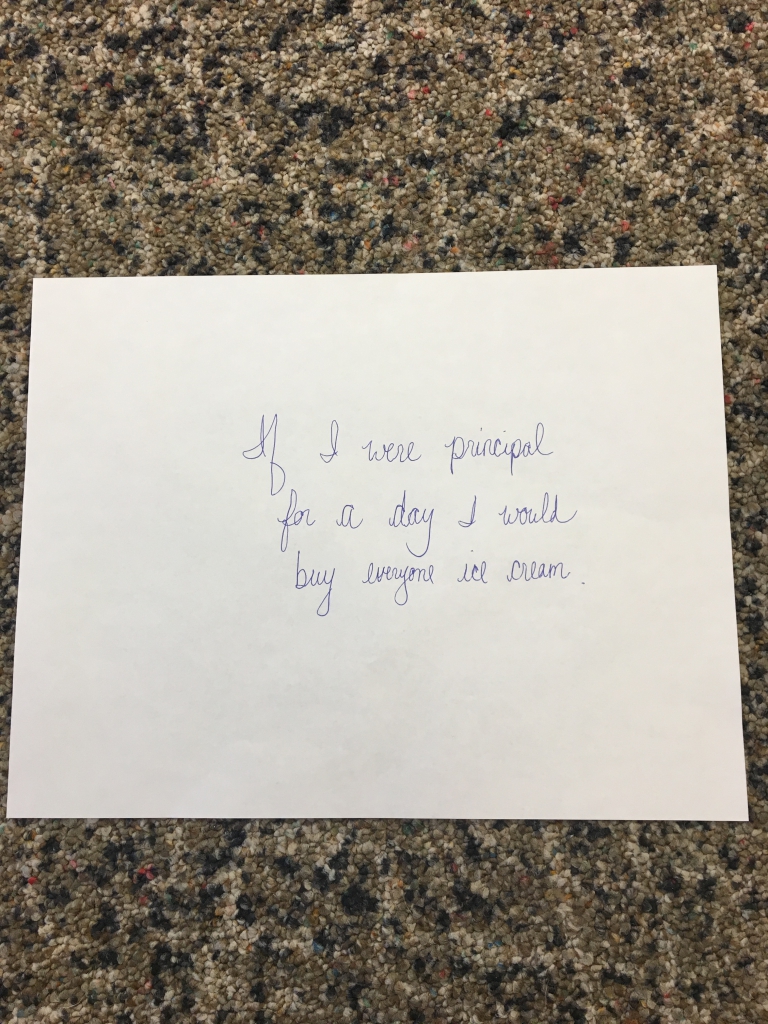 If I were principal
for a day I would
buy everyone ice cream.